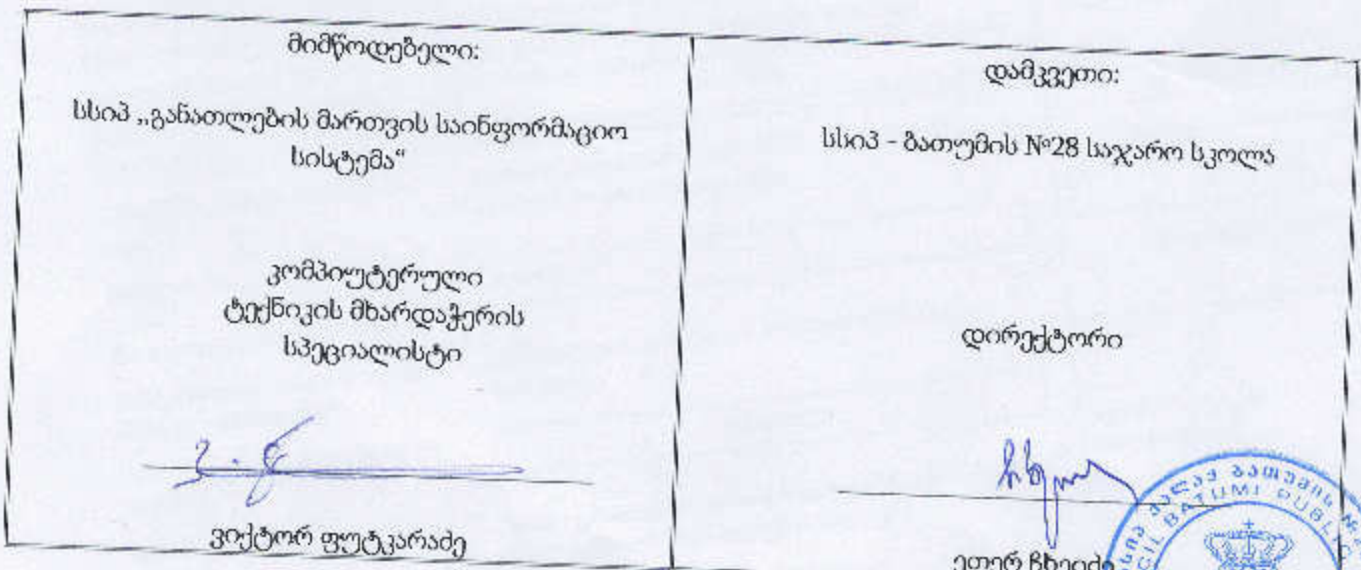 მიმწოდებელი:
სსიპ „განათლების მართვის საინფორმაციო
სისტემა“
კომპიუტერული
ტექნიკის მხარდაჭერის
სპეციალისტი
ვიქტორ ფუტკარაძე
დამკვეთი:
სსიპ - ბათუმის №28 საჯარო სკოლა
დირექტორი
ეთერ ჩხეიძე
ქალაქ ბათუმის
BATUMI PUBLIC